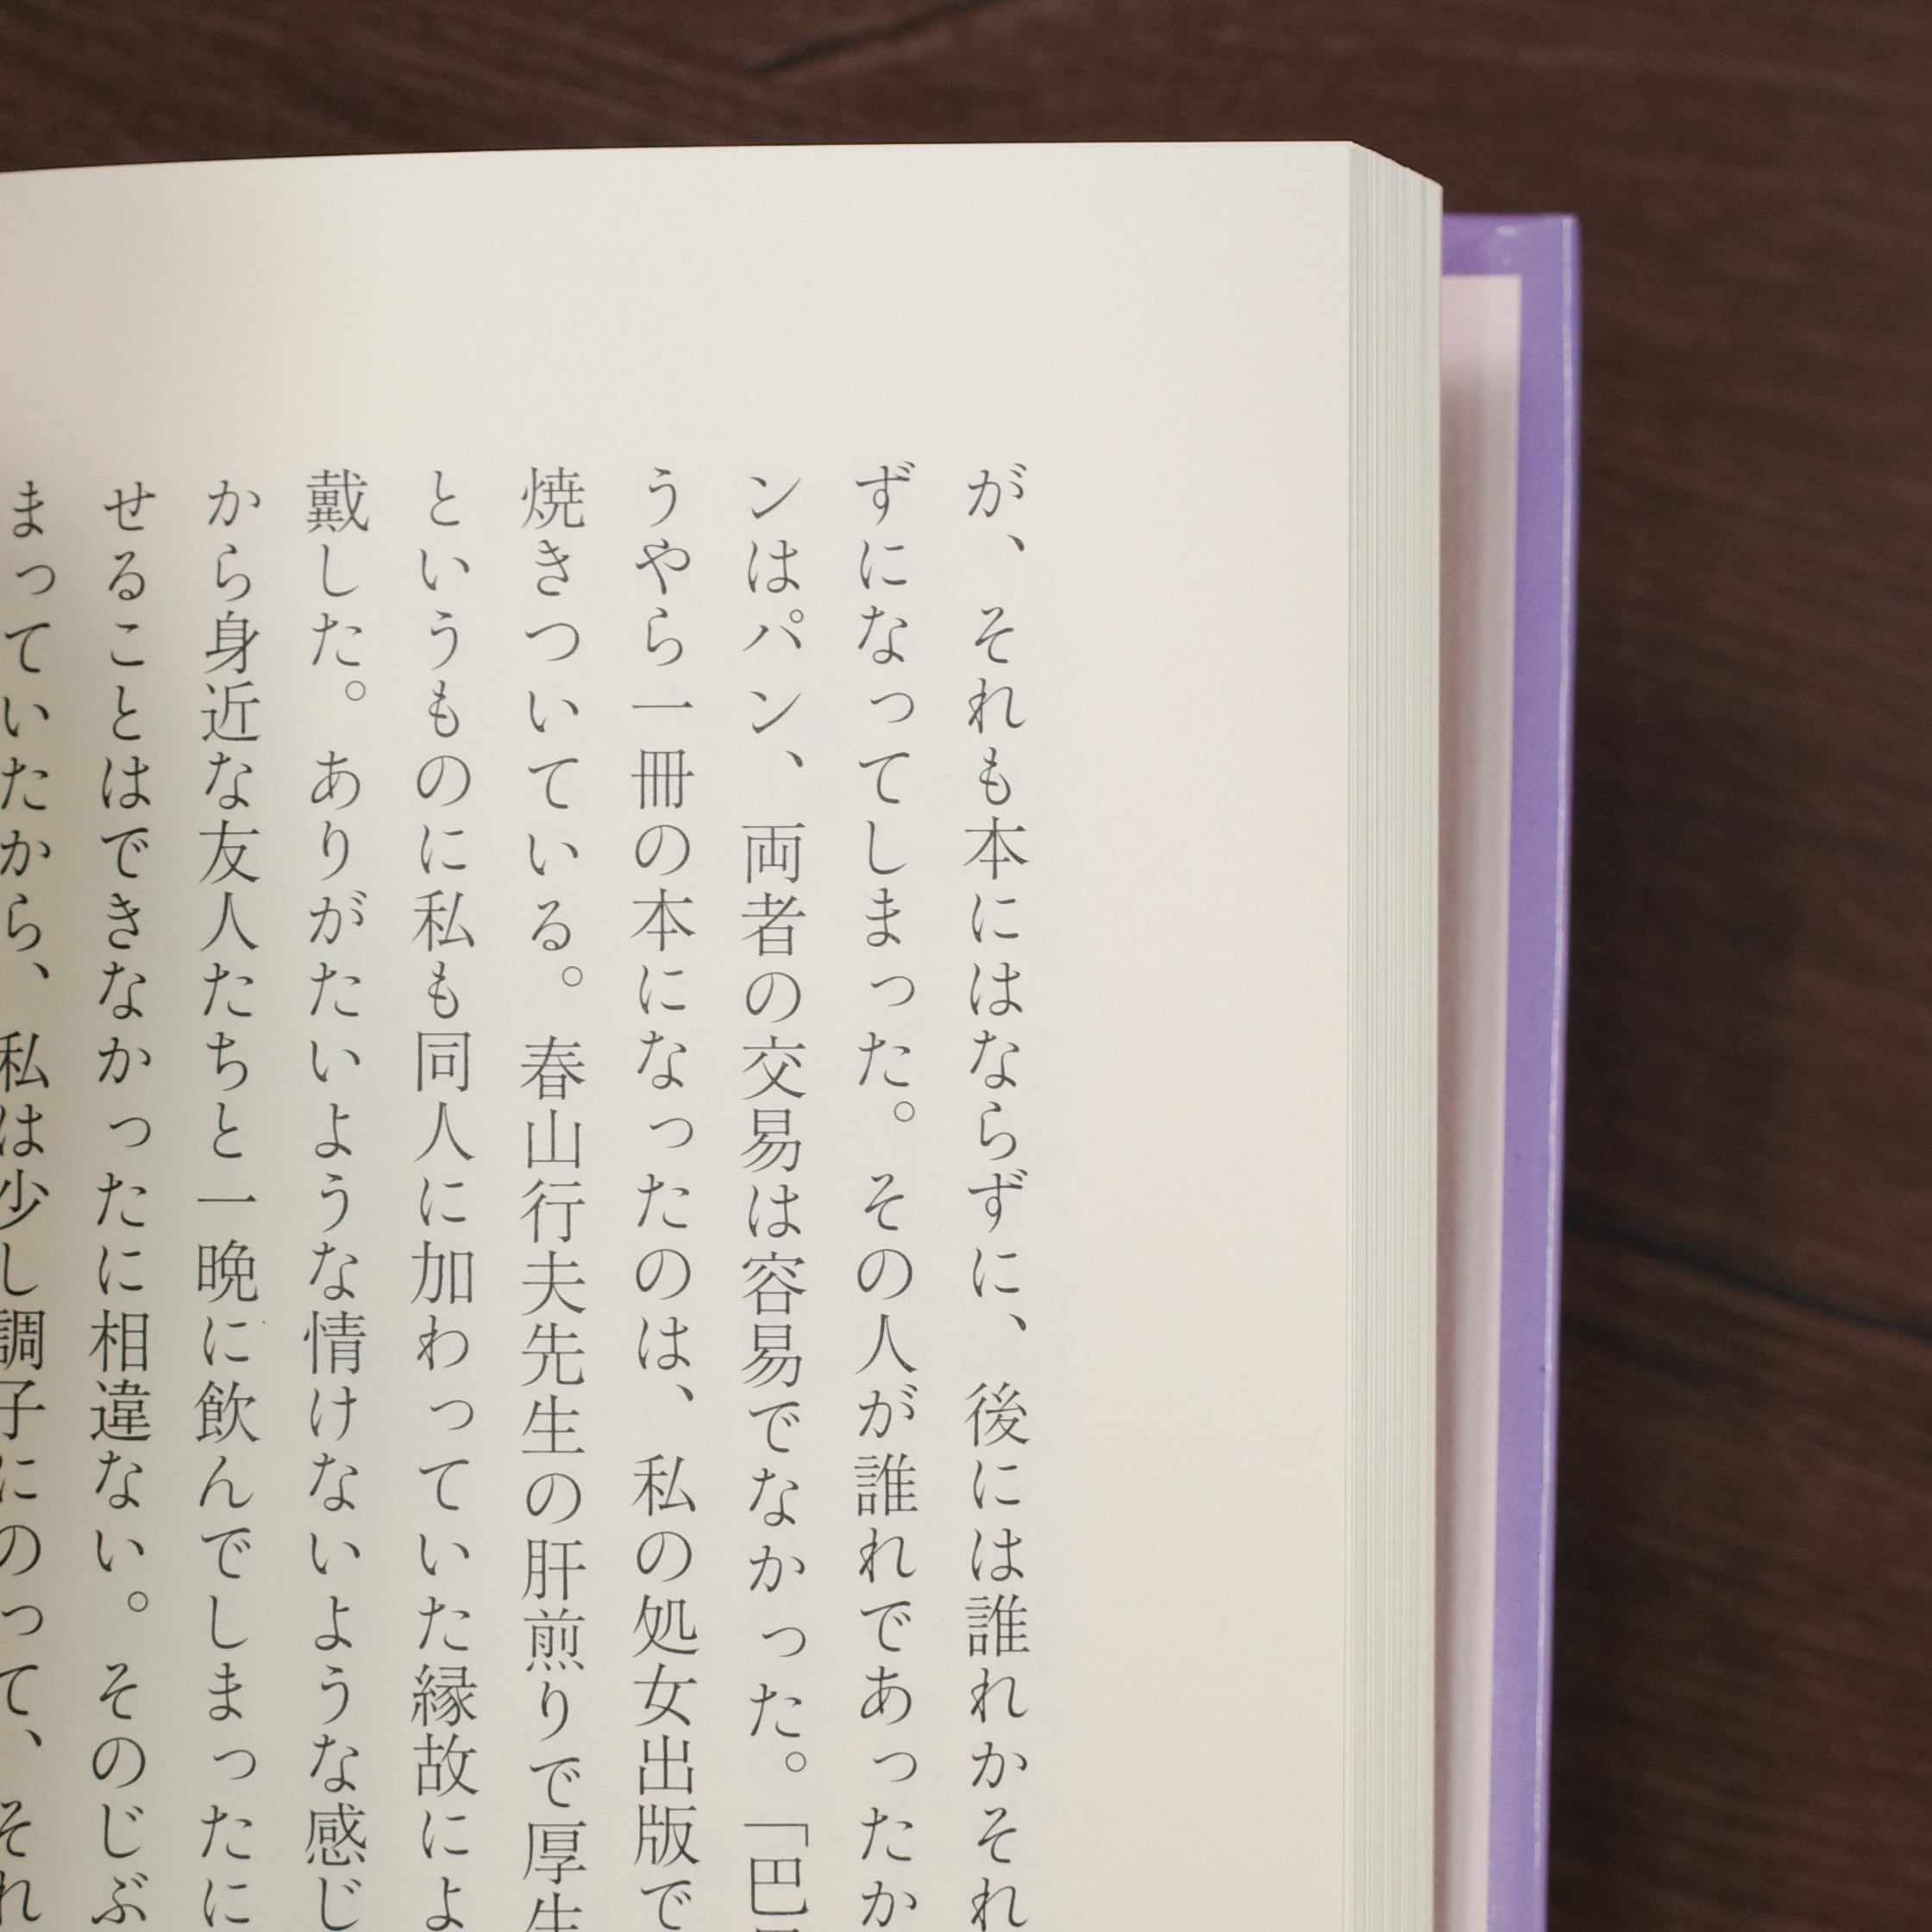 が、それも本にはならずに、後には誰れかそれ
ずになってしまった。その人が誰れであったか
ンはパン、両者の交易は容易でなかった。「巴
うやら一冊の本になったのは、私の処女出版で
焼きついている。春山行夫先生の肝煎りで厚生
というものに私も同人に加わっていた縁故によ
戴した。ありがたいような情けないような感じ
から身近な友人たちと一晩に飲んでしまったに
せることはできなかったに相違ない。そのじぶ
まっていたから、私は少し調子にのって、それ